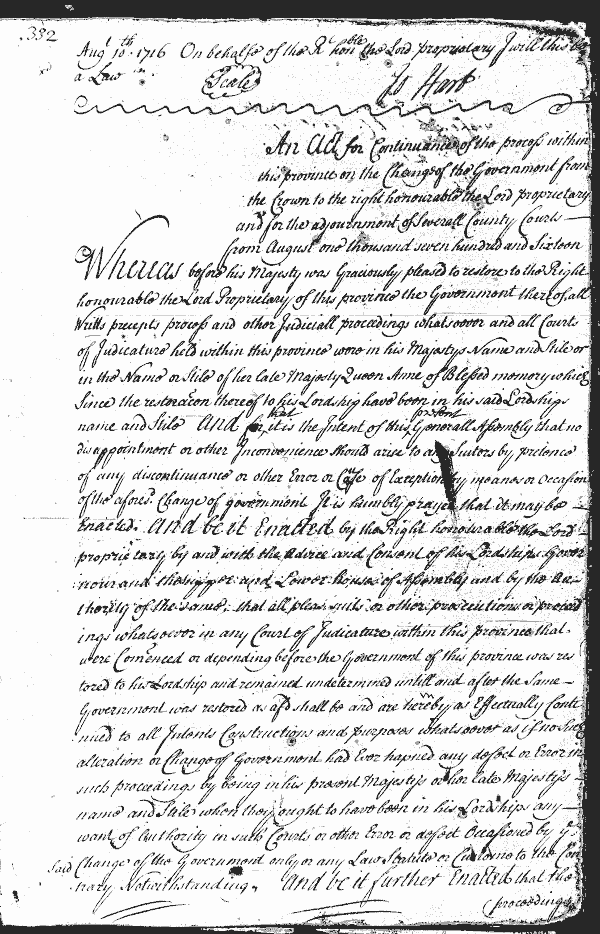 332
Augt 10th. 1716 On behalfe of the Rt honble the Lord proprietary I will this be
a Law
Seale
Jo Hart
An Act for Continuance of the process within
this province on the Change of the Government from
the Crown to the right honourable the Lord proprietary
and for the adjournment of Severall County Courts
from August one thousand seven hundred and Sixteen
Whereas before his Majesty was Graciously pleased to restore to the Right
honourable the Lord Proprietary of this province the Government thereof all
Writts precepts process and other Judiciall proceedings whatsoever and all Courts
of Judicature held within this province were in his Majestys Name and Stile or
in the Name or Stile of her late Majesty Queen Anne of Blessed memory which
Since the restoracon thereof to his Lordship have been in his said Lordships
name and Stile And for that it is the Intent of this present Generall Assembly that no
disappointment or other Inconvenience should arise to any Suitors by pretence
of any discontinuance or other Error or Cause of Exception by means or Occasion
of the aforesd. Change of government It is humbly prayed that it may be
Enacted. And be it Enacted by the Right honourable the Lord
proprietary by and with the advice and Consent of his Lordships Gover
nour and the upper and Lower house of Assembly and by the Au
thority of the same. that all pleas suits or other prosecutions or proceed
ings whatsoever in any Court of Judicature within this province that
were Comenced or depending before the Government of this province was res
tored to his Lordship and remained undetermined untill and after the Same
Government was restored as afd shall be and are hereby as Effectually Conti
nued to all Intents Constructions and purposes whatsoever as if no Such
alteration or Change of Government had Ever hapned any defect or Error in
such proceedings by being in his present Majestys or her late Majestys
name and Stile when they ought to have been in his Lordships any
want of Authority in such Courts or other Error or defect Occasioned by ye.
said Change of the Government only or any Law Statute or Custome to the Con
trary Notwithstanding. And be it further Enacted that the
proceedings